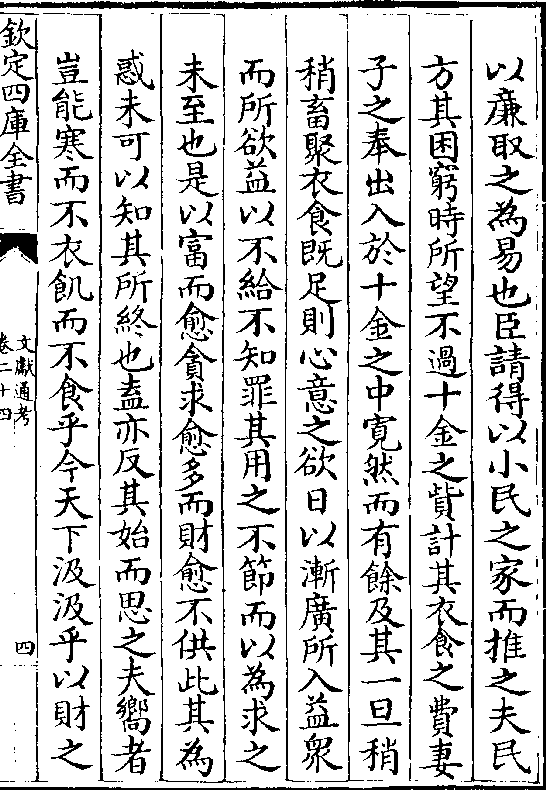 以廉取之為易也臣請得以小民之家而推之夫民
方其困窮時所望不過十金之貲計其衣食之費妻
子之奉出入於十金之中寛然而有餘及其一旦稍
稍畜聚衣食既足則心意之欲日以漸廣所入益衆
而所欲益以不給不知罪其用之不節而以為求之
未至也是以富而愈貪求愈多而財愈不供此其為
惑未可以知其所終也盍亦反其始而思之夫嚮者
豈能寒而不衣飢而不食乎今天下汲汲乎以財之
欽定四庫全書
文獻通考
卷二十四
四